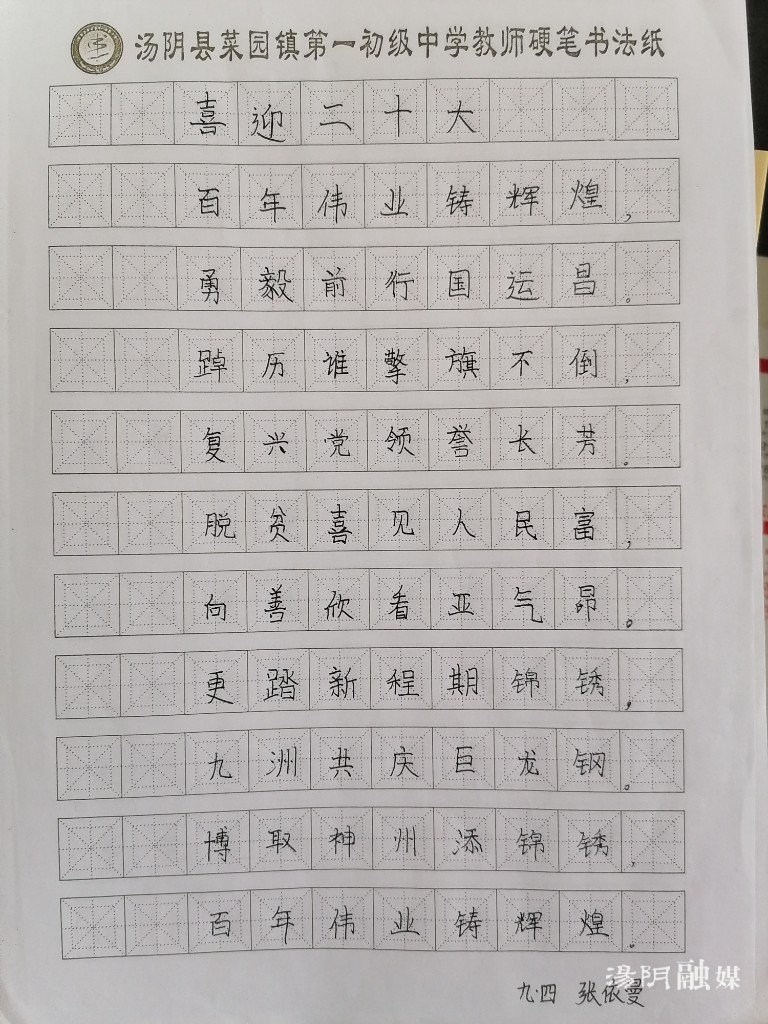 汤阴县菜园镇第一初级中学教师硬笔书法纸
喜迎二十大
百年伟业铸辉煌,
勇毅前行国运昌。
踔历谁擎旗不倒,
复兴党领誉长芳。
脱贫喜见人民富,
向善欣看亚气昂。
更踏新程期锦锈,
九洲共庆巨龙钢。
博取神州添锦锈,
百年伟业铸辉煌。
九·四 张依曼
汤阴融媒